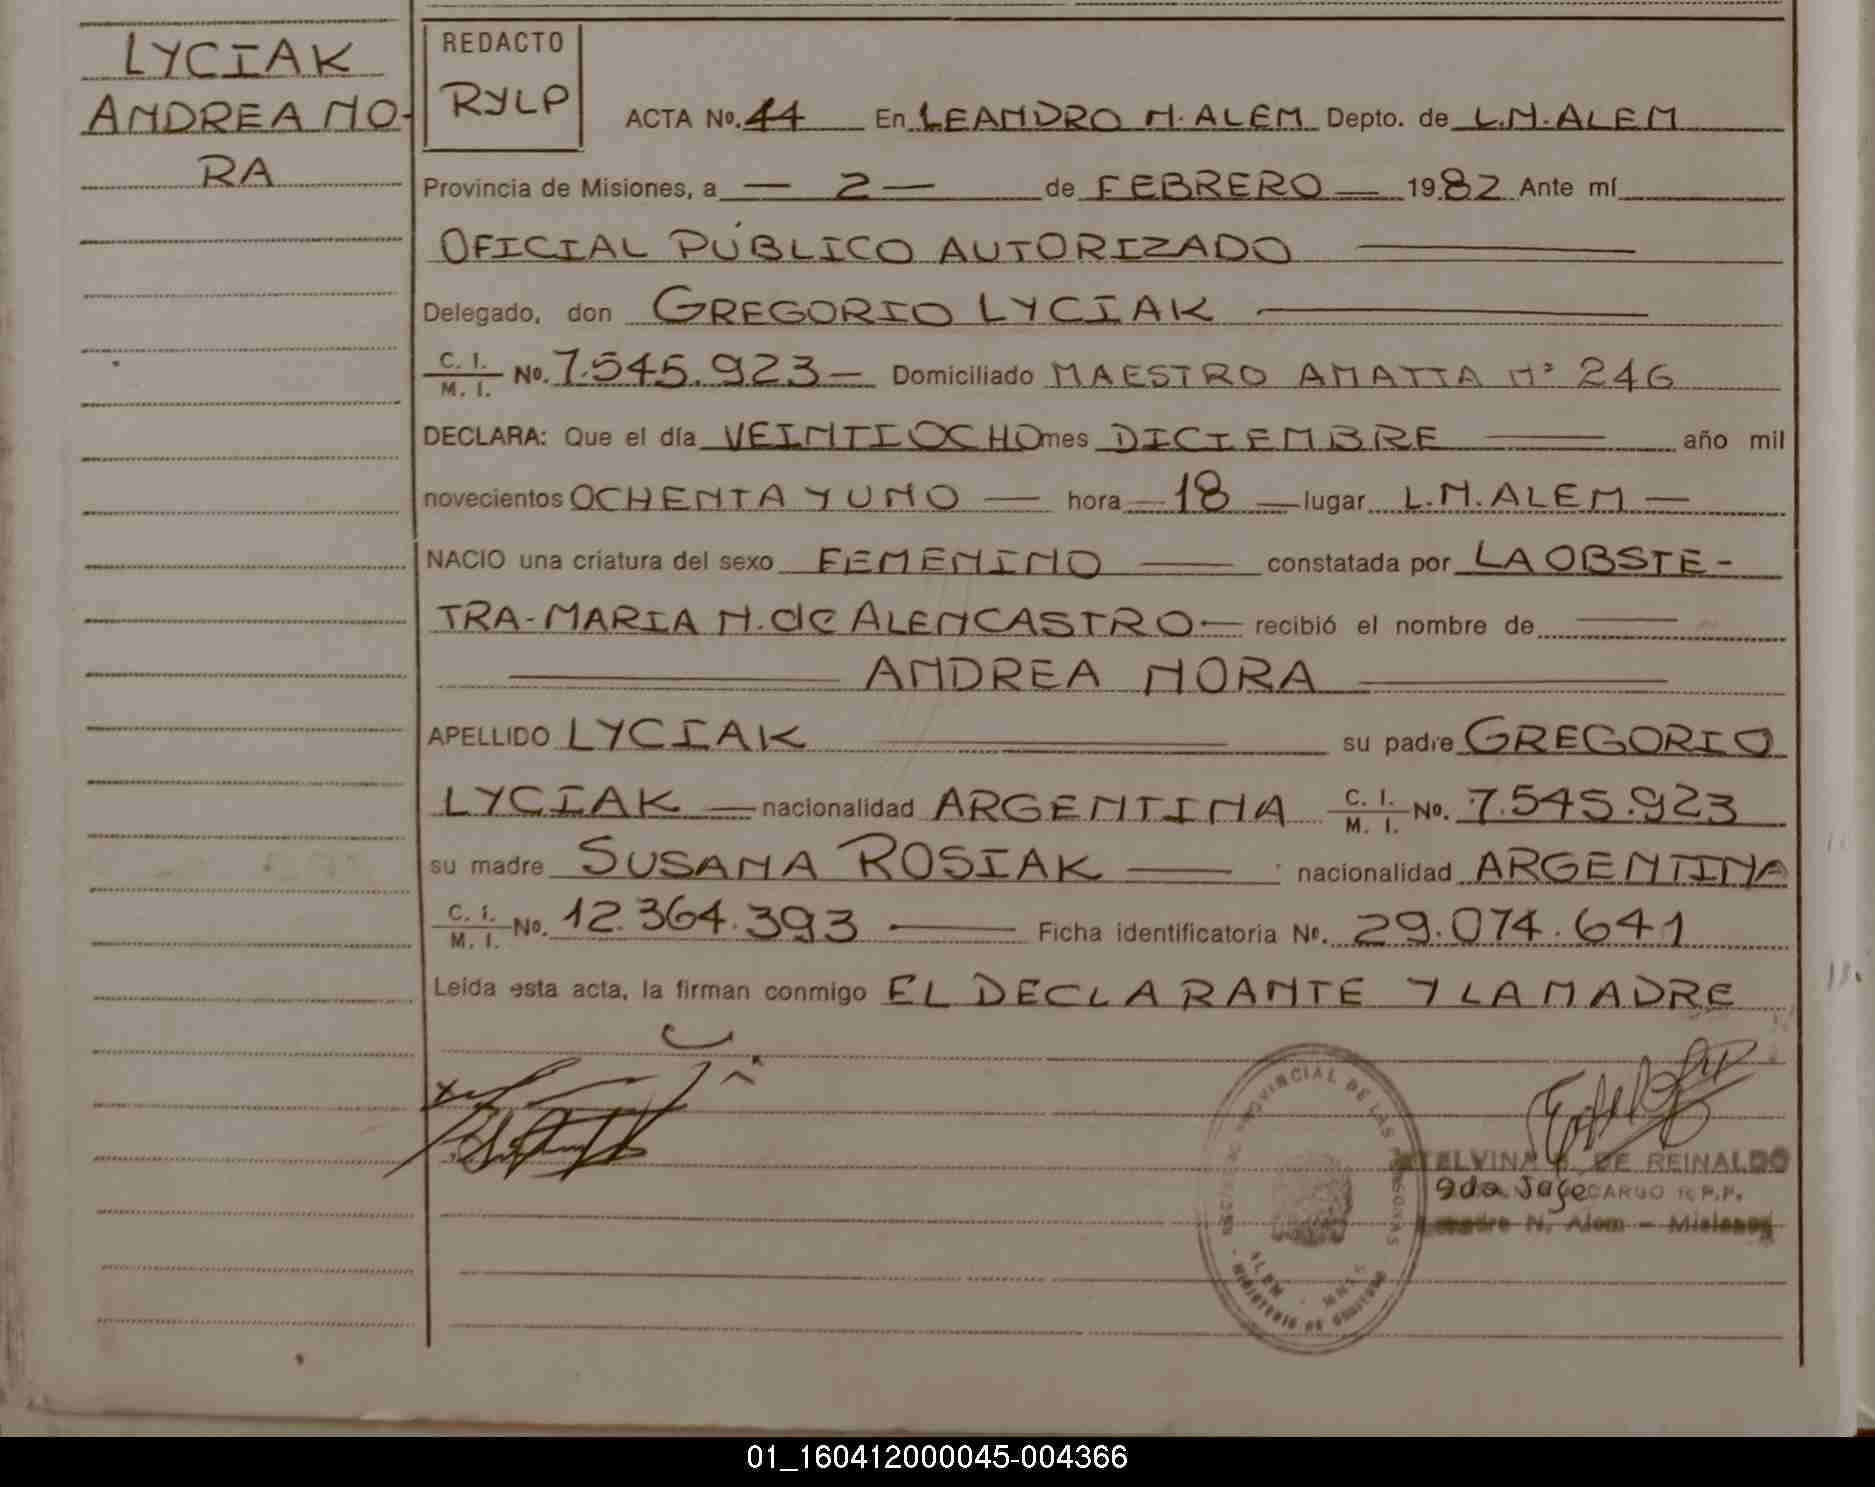 LYCIAK
ANDREA NO-
RA
REDACTO
RYLP
ACTA No. 44 En LEANDRO N. ALEM Depto. de L.N. ALEM
Provincia de Misiones, a — 2 — de FEBRERO — 1982 Ante mí
OFICIAL PÚBLICO AUTORIZADO
Delegado, don GREGORIO LYCIAK
C. I. M. I. No. 7.545.923 — Domiciliado MAESTRO AMATTA N° 246
DECLARA: Que el día VEINTIOCHO mes DICIEMBRE — año mil
novecientos OCHENTA Y UNO — hora — 18 — lugar L.N. ALEM —
NACIO una criatura del sexo FEMENINO — constatada por LA OBSTE-
TRA-MARIA N. de ALENCASTRO — recibió el nombre de
ANDREA NORA
APELLIDO LYCIAK su padre GREGORIO
LYCIAK — nacionalidad ARGENTINA C. I. M. I. No. 7.545.923
su madre SUSANA ROSIAK — nacionalidad ARGENTINA
C. I. M. I. No. 12.364.393 — Ficha identificatoria No. 29.074.641
Leída esta acta, la firman conmigo EL DECLARANTE Y LA MADRE
PROVINCIAL DE LAS PERSONAS
ALEM - MNES
MINISTERIO DE GOBIERNO
DE REINALDO
CARGO R.P.P.
Leandro N. Alem - Misiones
01_160412000045-004366